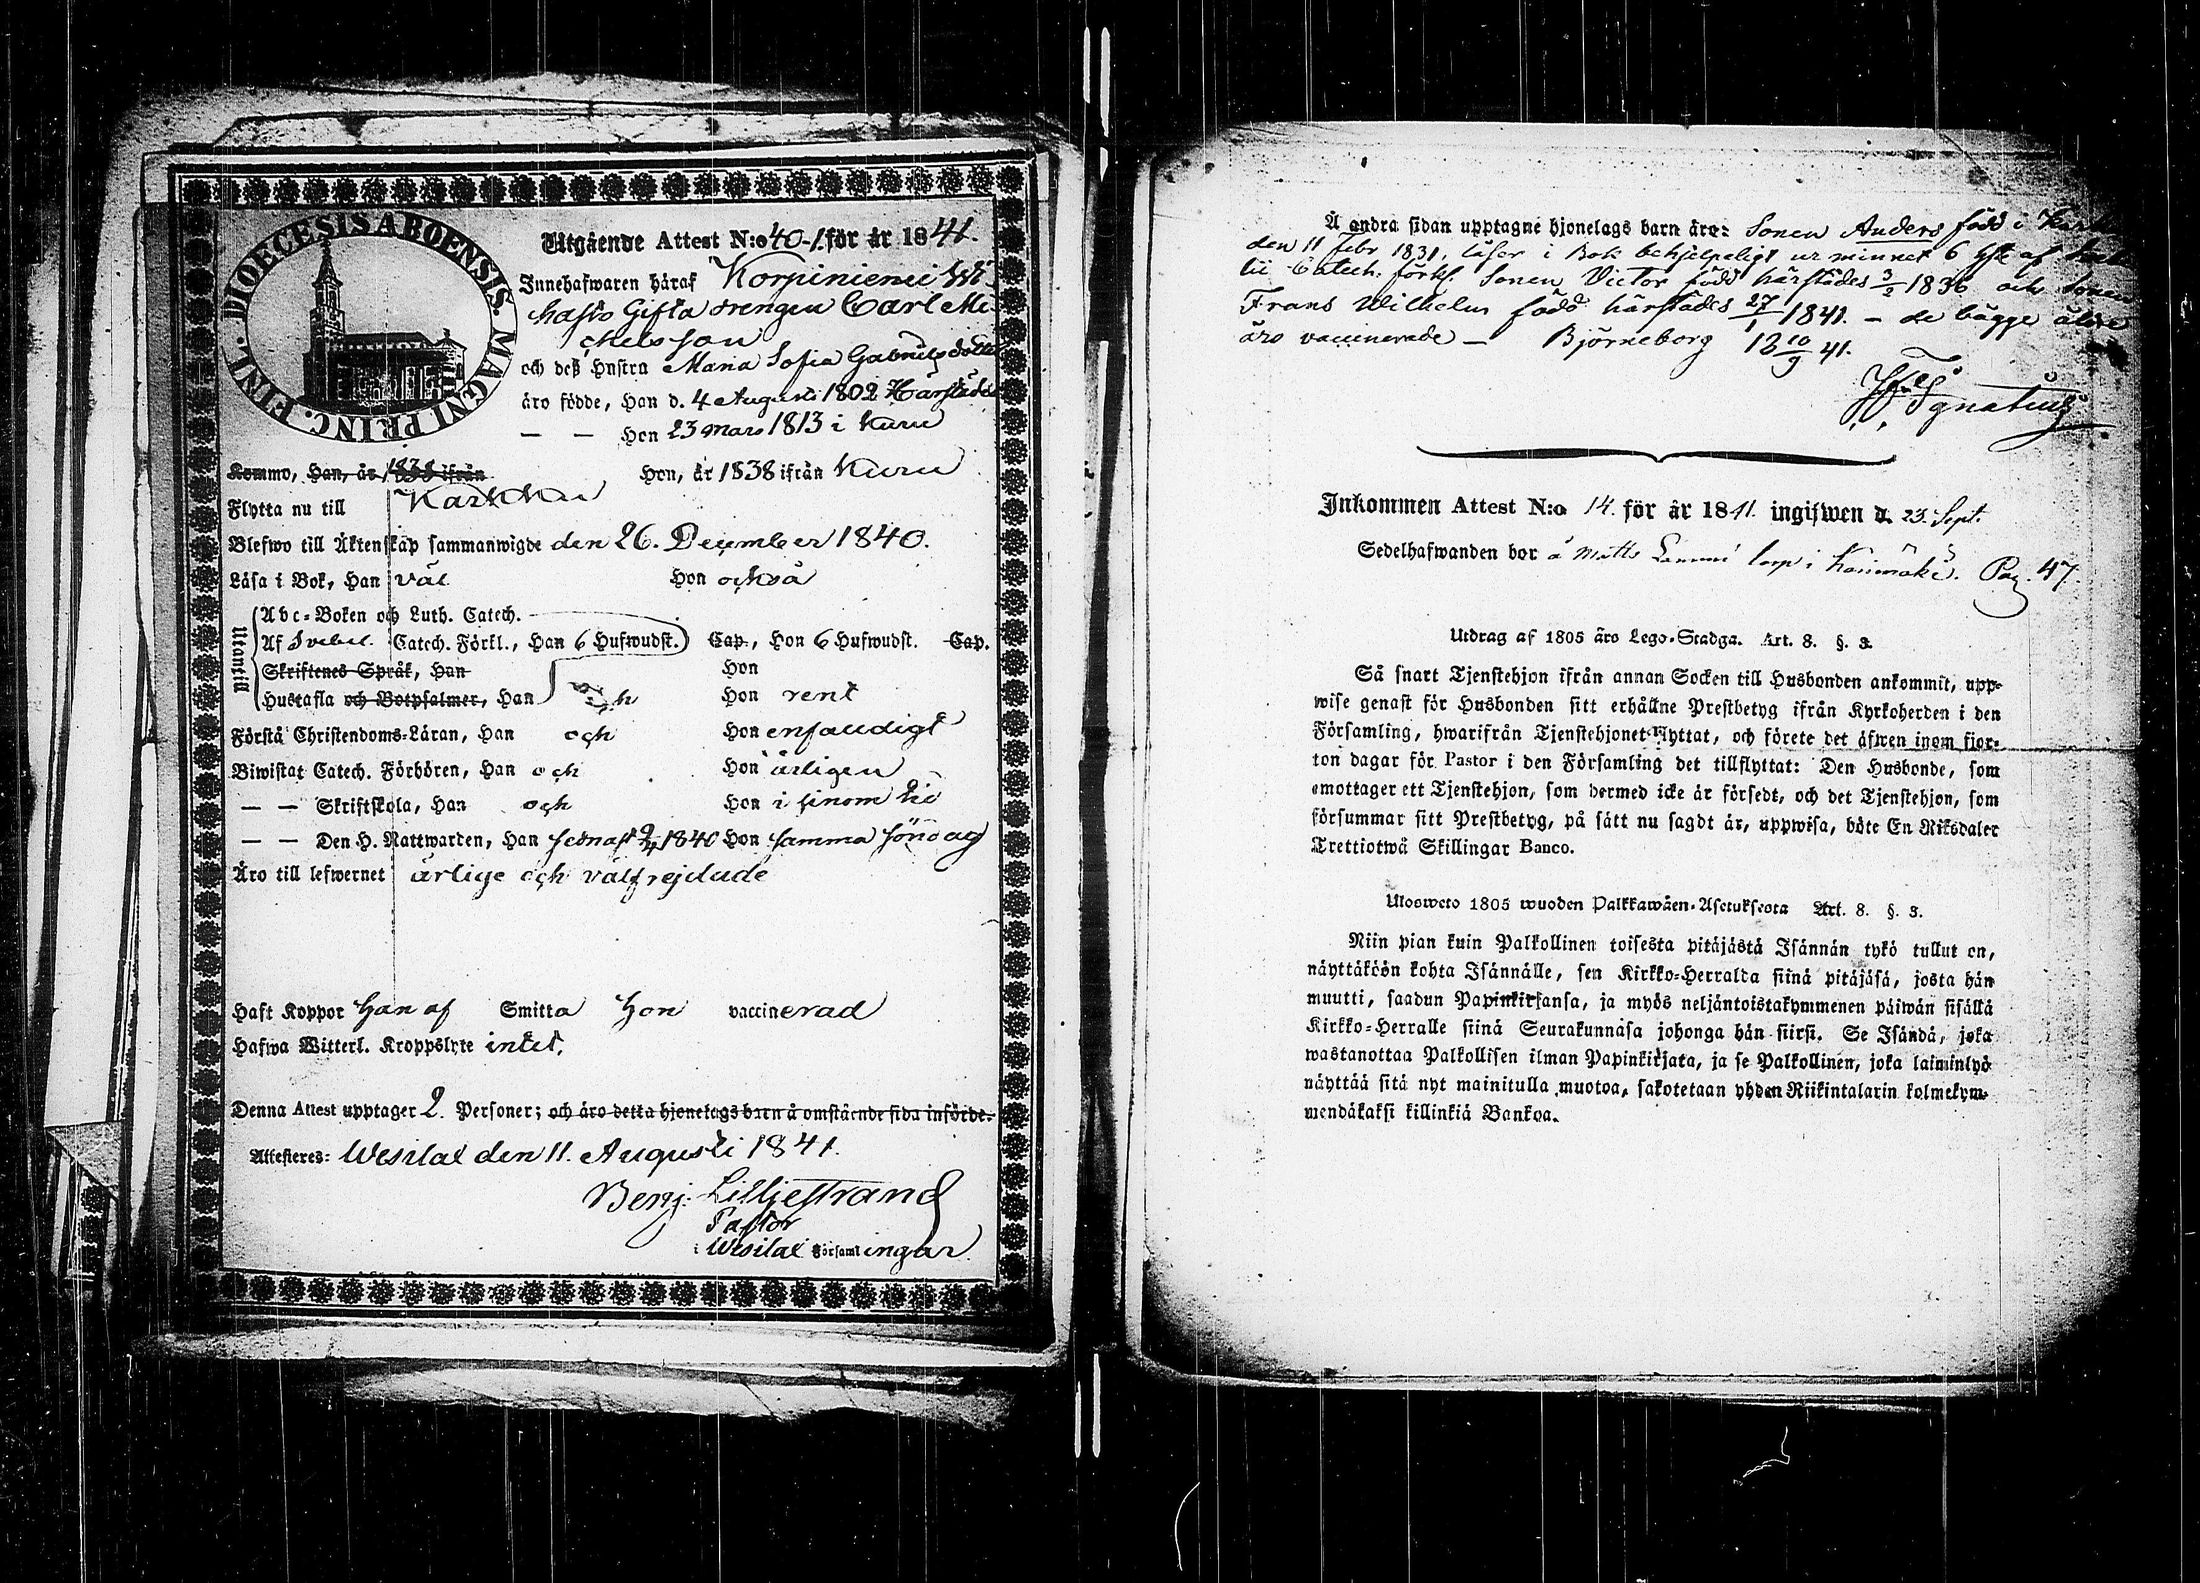 DIOECESIS ABOENSIS. MAGNI PRINC. FINL.
Utgående Attest N:o 40-1. för år 1841.
Innehafwaren häraf Korpiniemi
hafts Gifta drengen Carl Mi-
chelsson
och deß Hustru Maria Sofia Gabrielsdotter
äro födde, Han d. 4 Augusti 1802 Härstädes
— — Hon 23 Mars 1813 i Kuru
Kommo, Han, år 1838 ifrån Hon, år 1838 ifrån Kuru
Flytta nu till Karkku
Blefwo till Äktenskap sammanwigde den 26. December 1840.
Läsa i Bok, Han väl Hon också
Utantill
Abc-Boken och Luth. Catech.
Af Svebel. Catech. Förkl., Han 6 Hufwudst. Cap., Hon 6 Hufwudst. Cap.
Skriftenes Språk, Han Hon
Hustafla och Botpsalmer, Han och Hon rent
Förstå Christendoms-Läran, Han och Hon enfaldigt
Biwistat Catech. Förhören, Han och Hon årligen
— — Skriftskola, Han och Hon i sinom tid
— — Den H. Nattwarden, Han sednast 1840 Hon samma söndag
Äro till lefwernet ärlige och välfrejdade
Haft Koppor Han af Smitta Hon vaccinerad
Hafwa Witterl. Kroppslyte intet.
Denna Attest upptager 2. Personer; och äro detta hjonelags barn å omstående sida införde.
Attesteres: Wesilax den 11. Augusti 1841.
Benj. Lilljestrand
Pastor
i Wesilax Församlingar
Å andra sidan upptagne hjonelags barn äro: Sonen Anders född i
den 11 Febr 1831, läser i Bok behjelpeligt ur minnet 6 af
Catech. förkl. Sonen Victor född härstädes 3/2 1836 och Sonen
Frans Wilhelm född härstädes 27/1 1841. — de bägge äldre
äro vaccinerade — Björneborg 18 10/9 41.
Ignatius
Inkommen Attest N:o 14. för år 1841. ingifwen d. 23. Sept.
Sedelhafwanden bor å Matts torp i Pag. 47.
Utdrag af 1805 års Lego-Stadga. Art. 8. §. 3.
Så snart Tjenstehjon ifrån annan Socken till Husbonden ankommit, upp-
wise genast för Husbonden sitt erhållne Prestbetyg ifrån Kyrkoherden i den
Församling, hwarifrån Tjenstehjonet flyttat, och förete det äfwen inom fjor-
ton dagar för Pastor i den Församling det tillflyttat: Den Husbonde, som
emottager ett Tjenstehjon, som dermed icke är försedt, och det Tjenstehjon, som
försummar sitt Prestbetyg, på sätt nu sagdt är, uppwisa, böte En Riksdaler
Trettiotwå Skillingar Banco.
Uloswето 1805 wuoden Palkkawäen-Asetuksesta Art. 8. §. 3.
Niin pian kuin Palkollinen toisesta pitäjästä Isännän tykö tullut on,
näyttäköön kohta Isännälle, sen Kirkko-Herralta siinä pitäjäsä, josta hän
muutti, saadun Papinkirjansa, ja myös neljäntoistakymmenen päiwän sisällä
Kirkko-Herralle siinä Seurakunnasa johonga hän siirsi. Se Isändä, joka
wastanottaa Palkollisen ilman Papinkirjata, ja se Palkollinen, joka laiminlyö
näyttää sitä nyt mainitulla muotoa, sakotetaan yhden Riikintalarin kolmekym-
mendäkaksi killinkiä Bankoa.